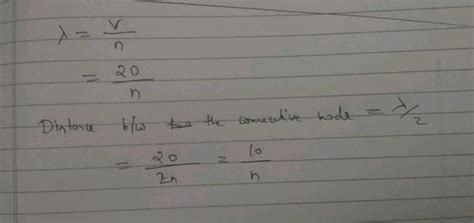 λ = V/n
= 20/n
Distance b/w the consecutive node = λ/2
= 20/2n = 10/n